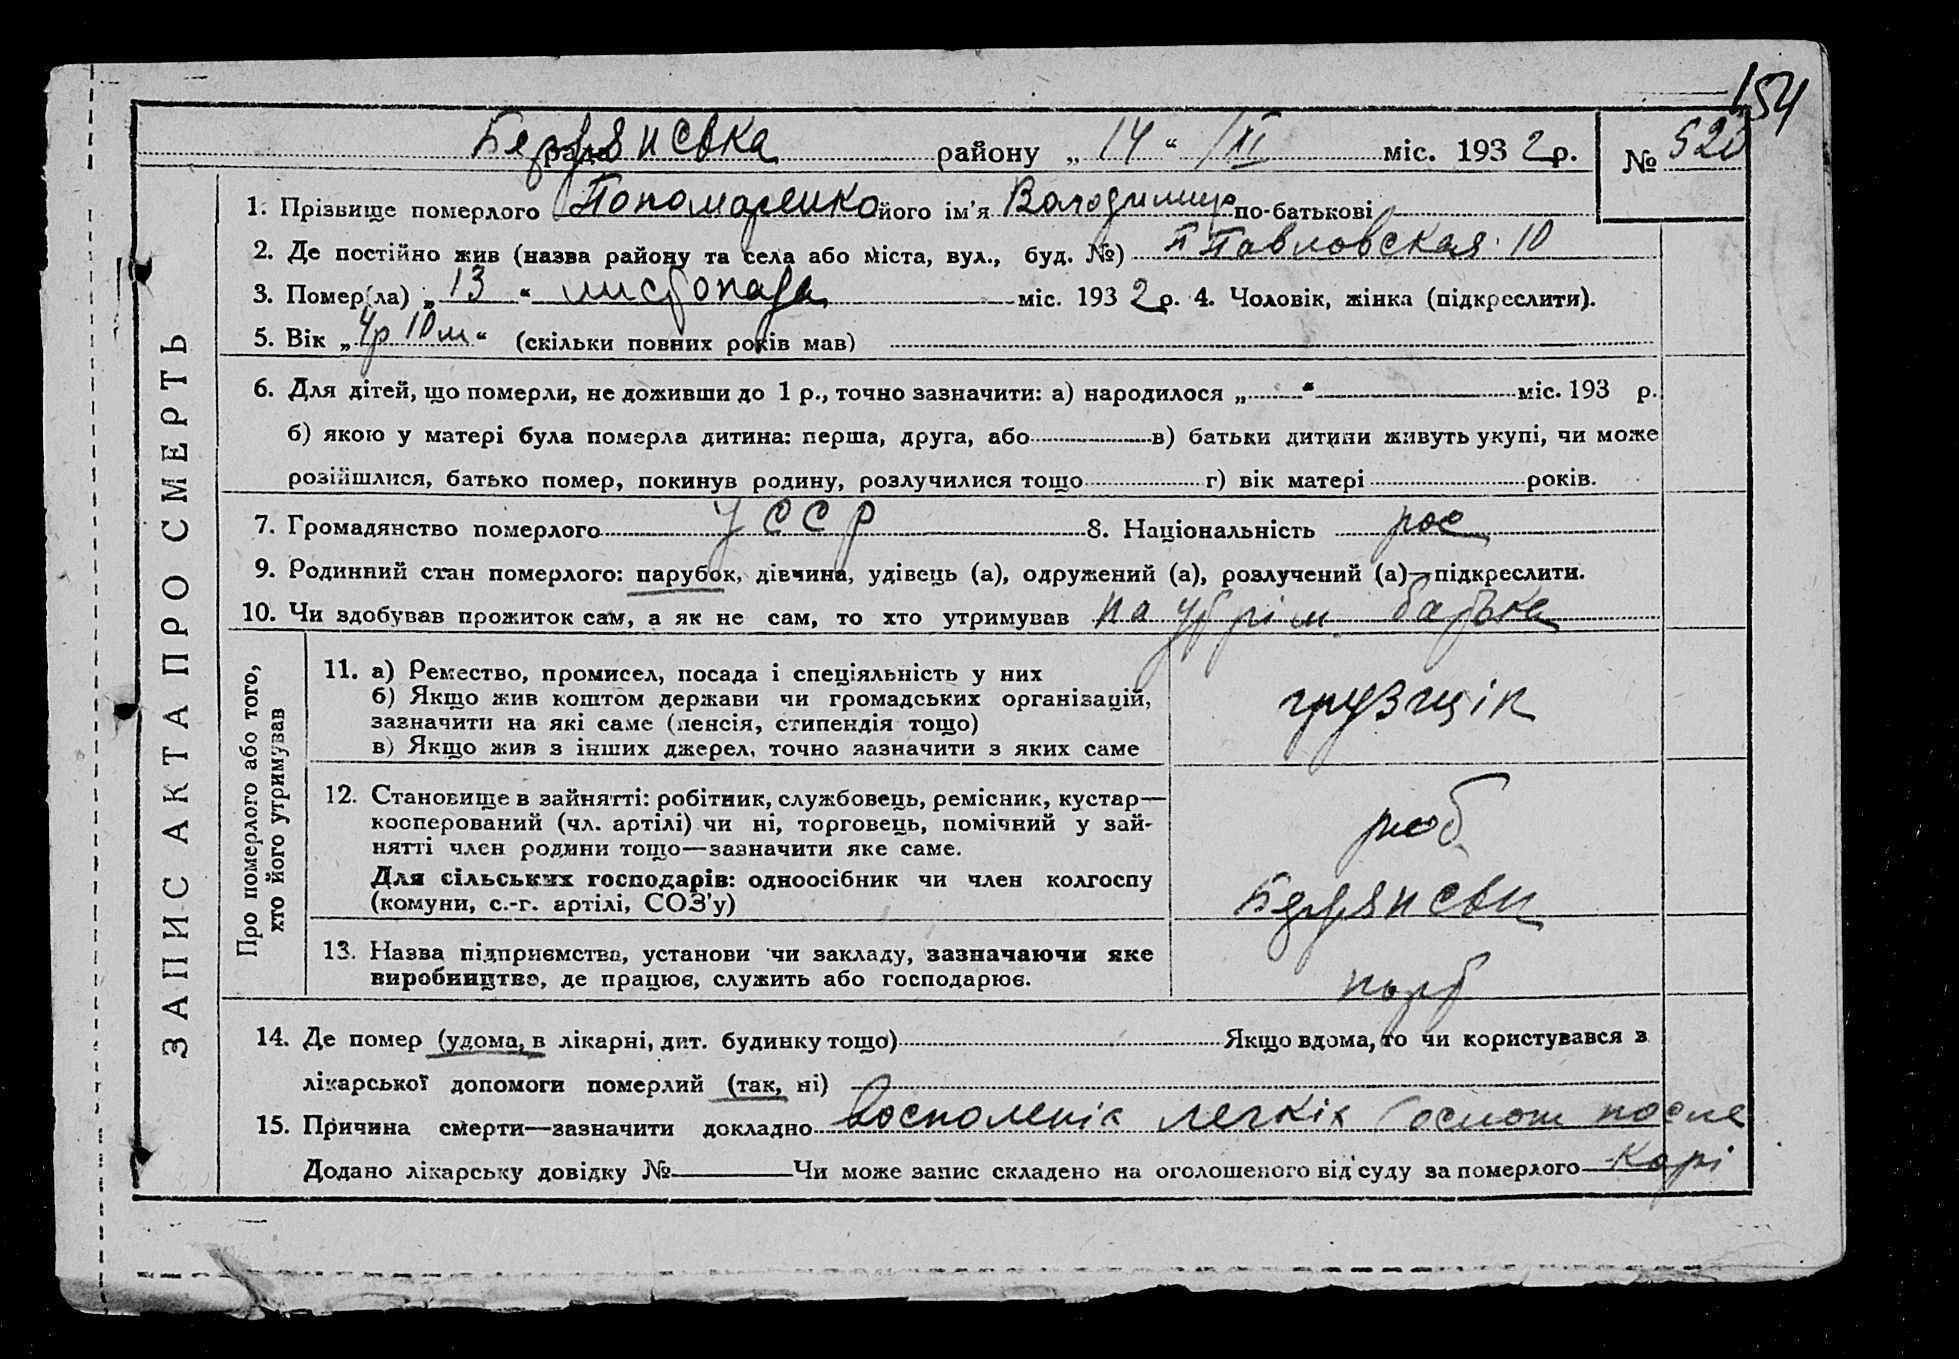 154
Бердянська рада району „14“ XI міс. 1932 р. № 520
ЗАПИС АКТА ПРО СМЕРТЬ
1. Прізвище померлого Пономаренко його ім’я Володимир по-батькові
2. Де постійно жив (назва району та села або міста, вул., буд. №) П Павловская 10
3. Помер(ла) „13“ листопада міс. 1932 р. 4. Чоловік, жінка (підкреслити).
5. Вік „4р 10м“ (скільки повних років мав)
6. Для дітей, що померли, не доживши до 1 р., точно зазначити: а) народилося „ “ міс. 193 р.
б) якою у матері була померла дитина: перша, друга, або в) батьки дитини живуть укупі, чи може
розійшлися, батько помер, покинув родину, розлучилися тощо г) вік матері років.
7. Громадянство померлого УССР 8. Національність рос
9. Родинний стан померлого: парубок, дівчина, удівець (а), одружений (а), розлучений (а)—підкреслити.
10. Чи здобував прожиток сам, а як не сам, то хто утримував на утрім. батька
Про померлого або того,
хто його утримував
11. а) Ремество, промисел, посада і спеціяльність у них
б) Якщо жив коштом держави чи громадських організацій,
зазначити на які саме (пенсія, стипендія тощо)
в) Якщо жив з інших джерел, точно зазначити з яких саме
грузщік
12. Становище в зайнятті: робітник, службовець, ремісник, кустар—
косперований (чл. артілі) чи ні, торговець, помічний у зай-
нятті член родини тощо—зазначити яке саме.
Для сільських господарів: одноосібник чи член колгоспу
(комуни, с.-г. артілі, СОЗ’у)
роб
13. Назва підприємства, установи чи закладу, зазначаючи яке
виробництво, де працює, служить або господарює.
Бердянськи
порт
14. Де помер (удома, в лікарні, дит. будинку тощо) Якщо вдома, то чи користувався з
лікарської допомоги померлий (так, ні)
15. Причина смерти—зазначити докладно Восполеніє легкіх (ослож после
Додано лікарську довідку № Чи може запис складено на оголошеного від суду за померлого
корі